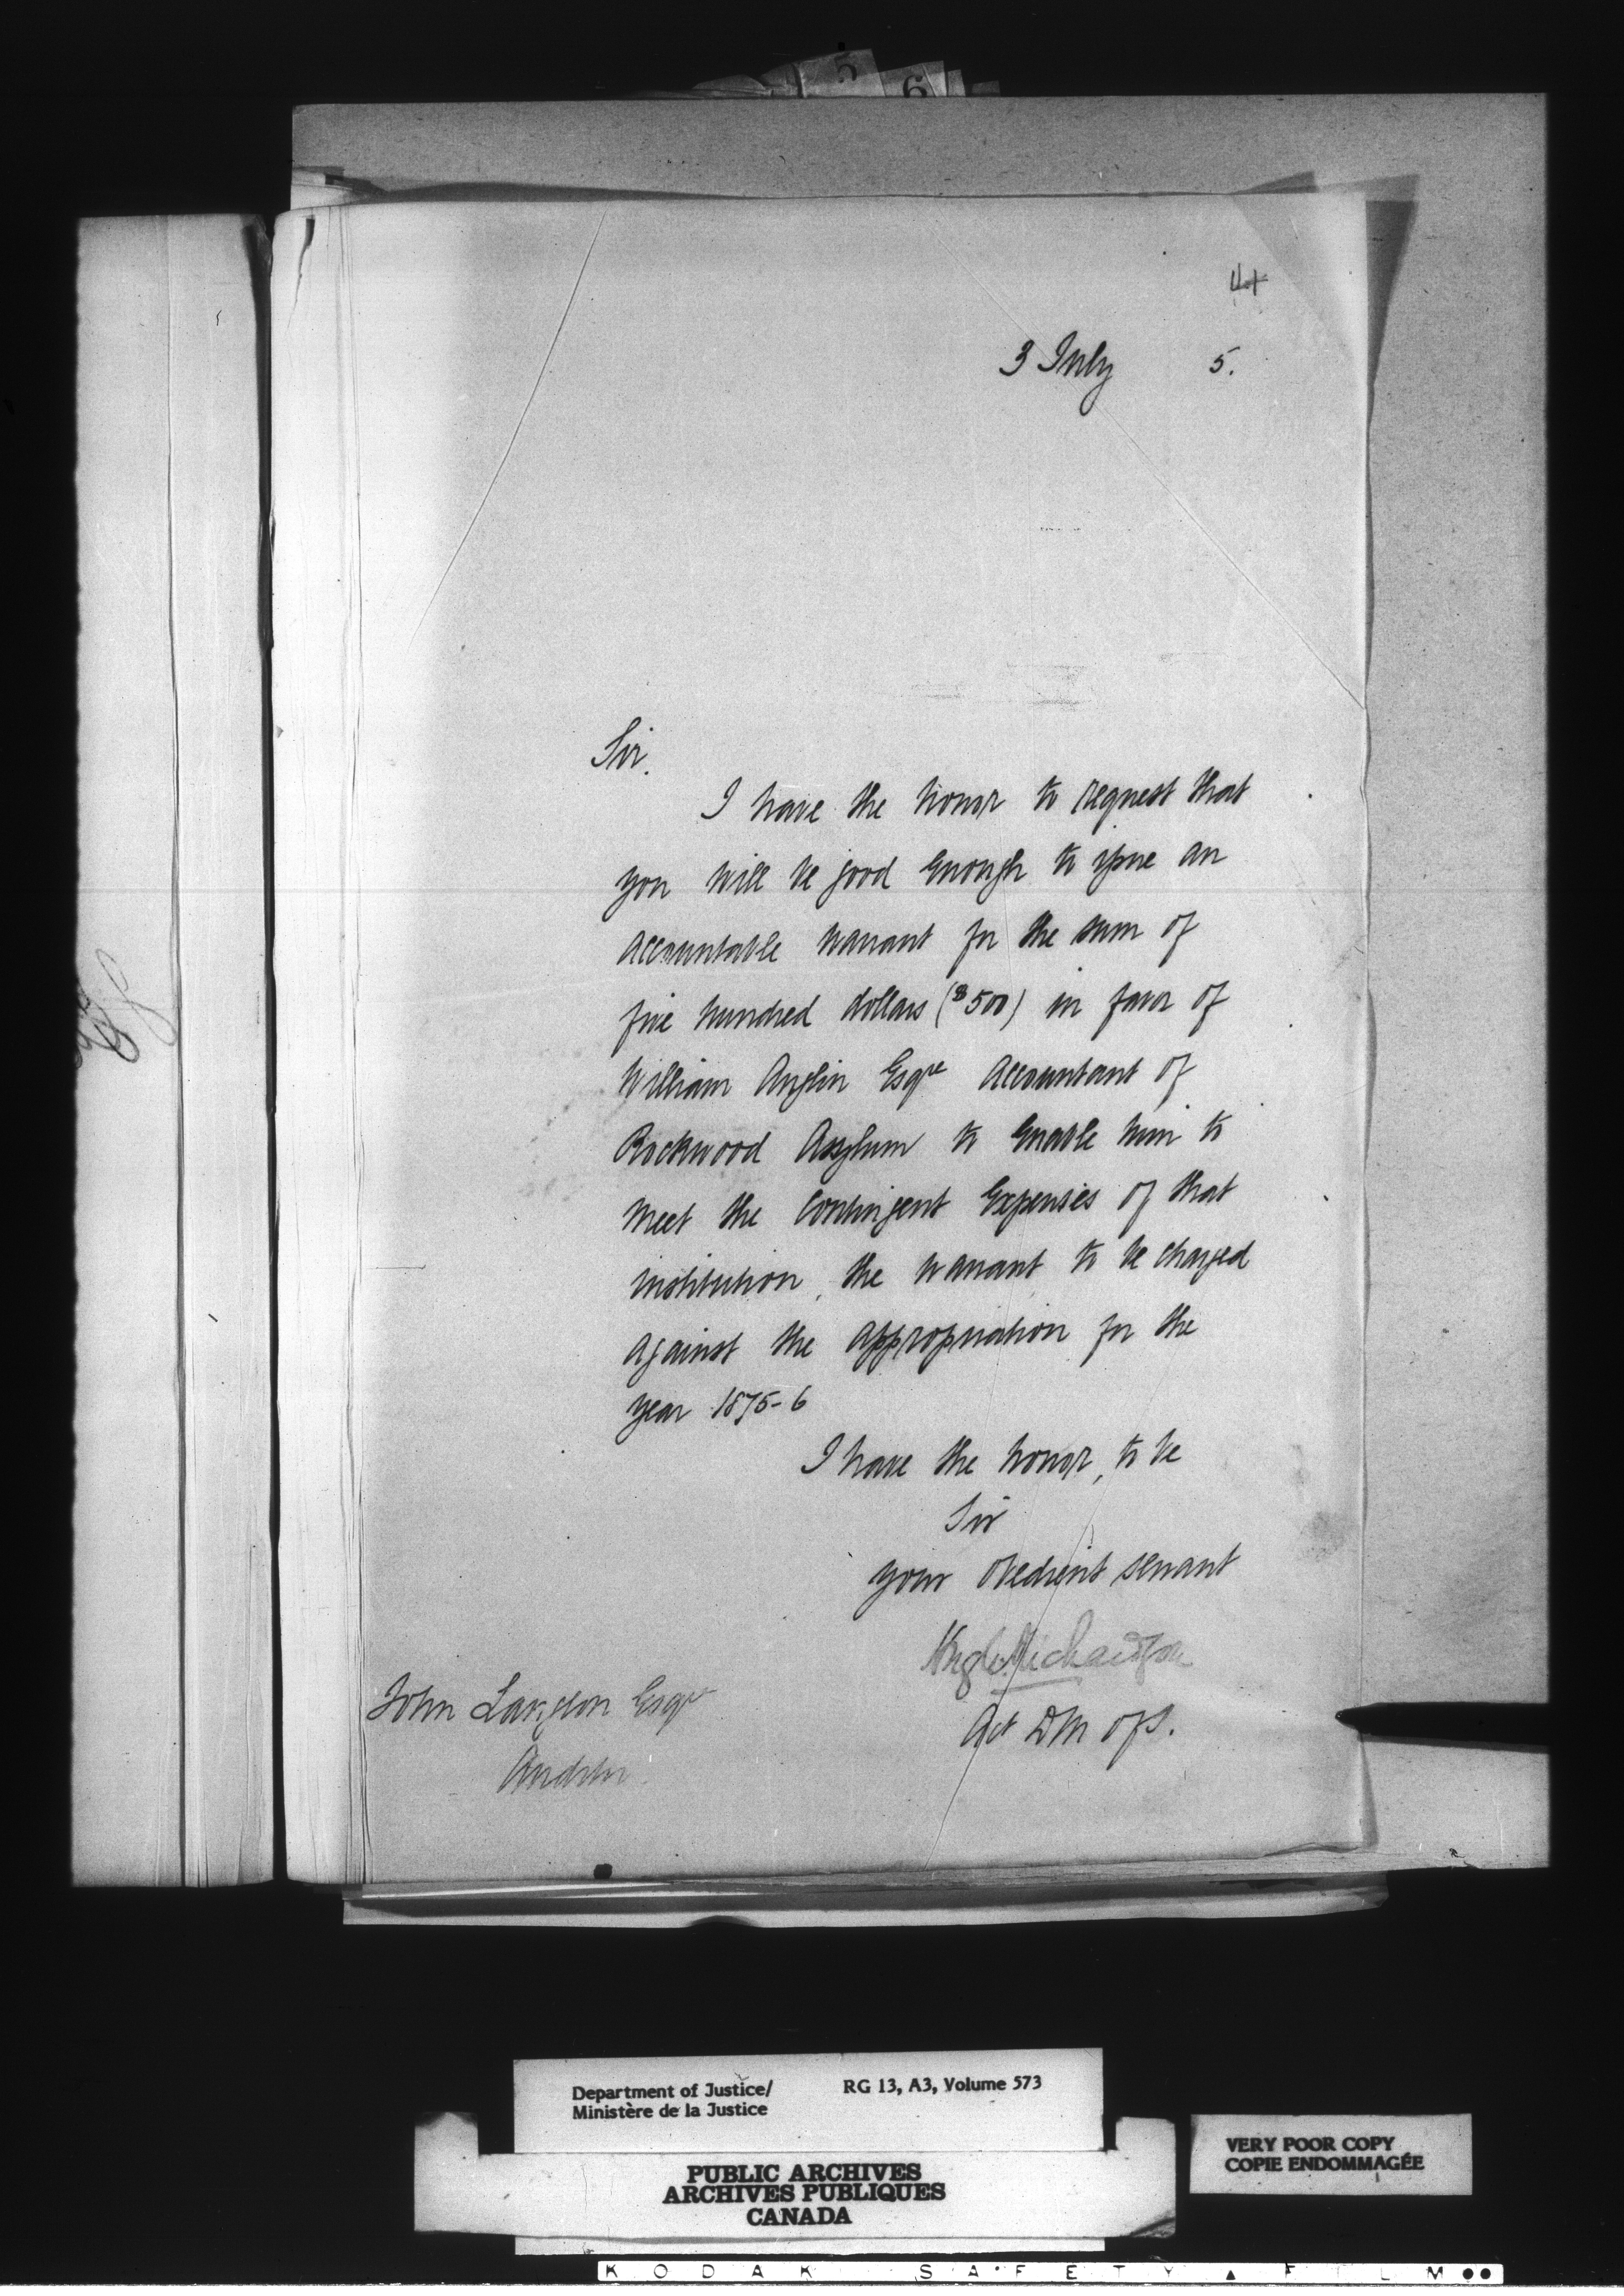 5
6
41
3 July 5.
Sir.
I have the honor to request that
you will be good enough to issue an
accountable warrant for the sum of
five hundred dollars ($500) in favor of
William Anglin Esqre Accountant of
Rockwood Asylum to enable him to
meet the contingent expenses of that
institution, the warrant to be charged
against the appropriation for the
year 1875-6
I have the honor, to be
Sir
your obedient servant
Hugh Richardson
Act DM of J.
John Langton Esqre
Auditor.
Department of Justice/ RG 13, A3, Volume 573
Ministère de la Justice
PUBLIC ARCHIVES
ARCHIVES PUBLIQUES
CANADA
VERY POOR COPY
COPIE ENDOMMAGÉE
KODAK SAFETY ▲ FILM ●●